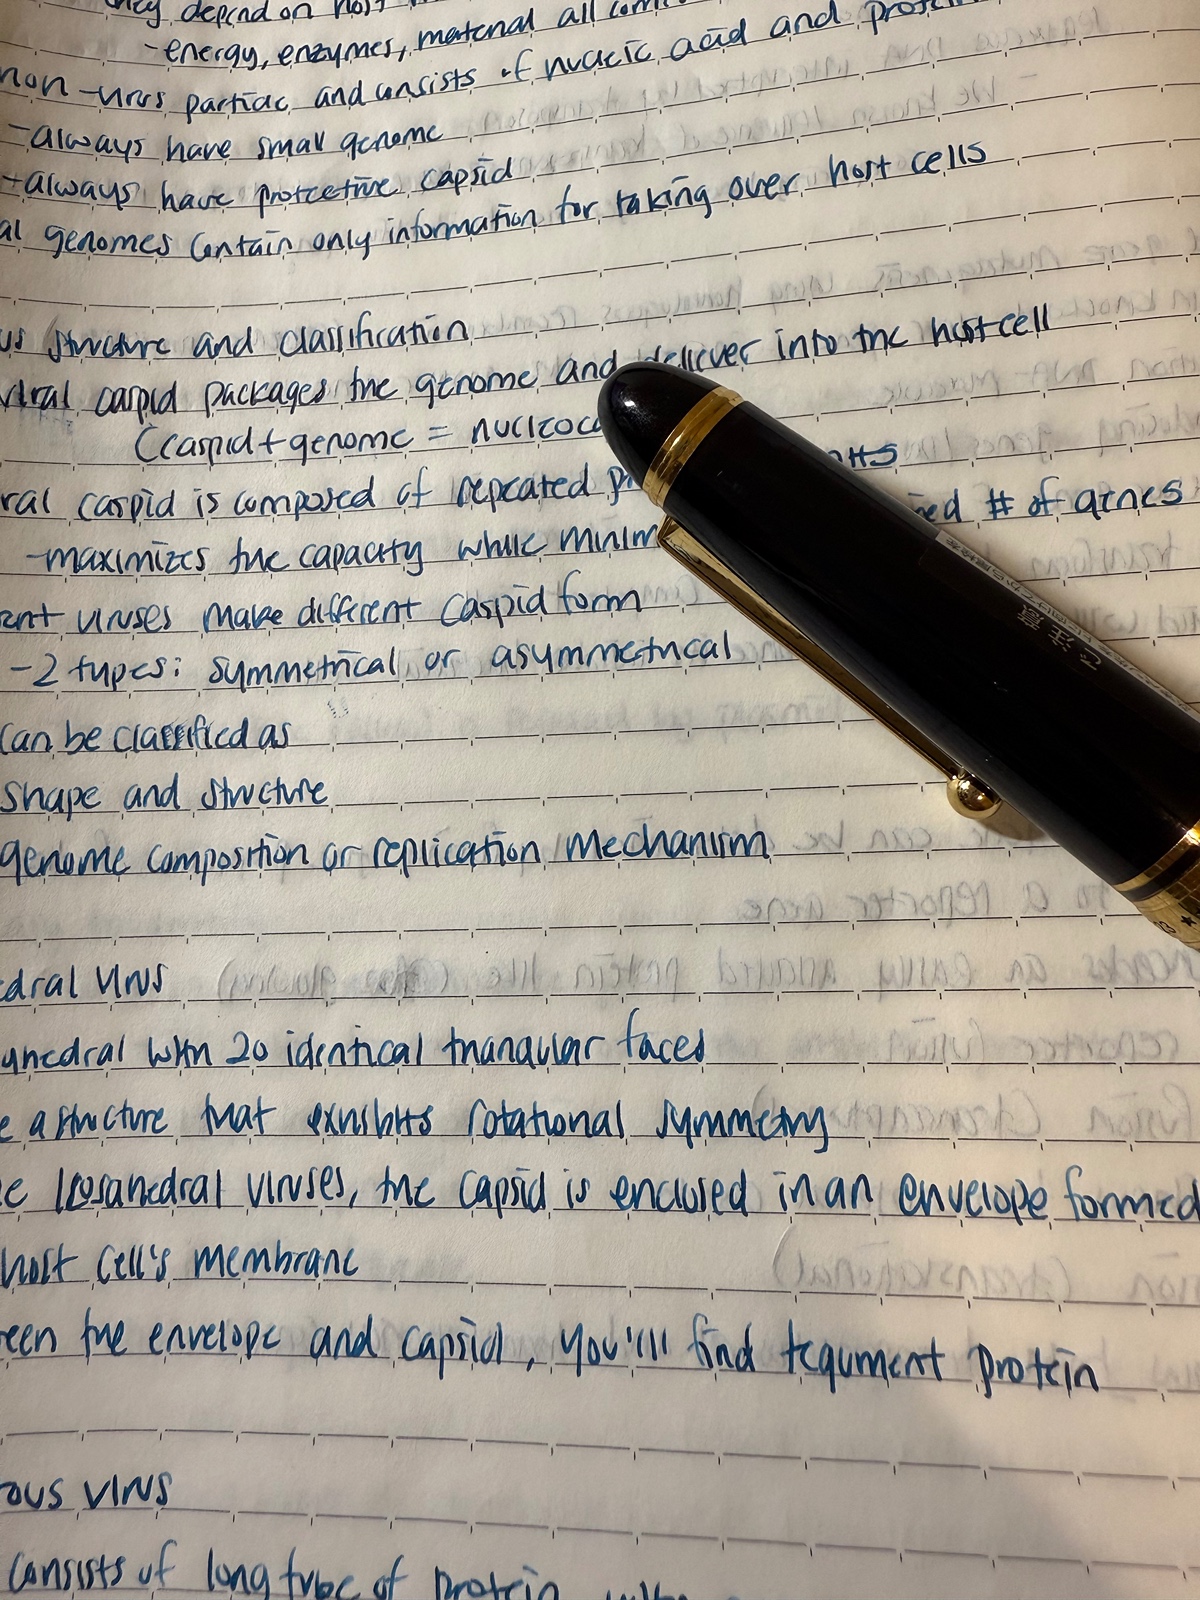 they depend on host
-energy, enzymes, material all com
non -virus particle and consists of nucleic acid and protein
-always have small genome
-always have protcetive capsid
al genomes contain only information for taking over host cells
us structure and classification
viral caspid packages the genome and deliever into the host cell
(caspid+genome = nucleoca
ral caspid is composed of repeated pr
-maximizes the capacity while minim ed # of genes
ent viruses make different caspid form
-2 types: symmetrical or asymmetrical
can be classified as
shape and structure
genome composition or replication mechanism
edral virus
ahedral with 20 identical triangular faces
e a structure that exhibits rotational symmetry
e icosahedral viruses, the capsid is enclosed in an envelope formed
host cell's membrane
reen the envelope and capsid, you'll find tegument protein
rous virus
consists of long tube of protein
ご注意